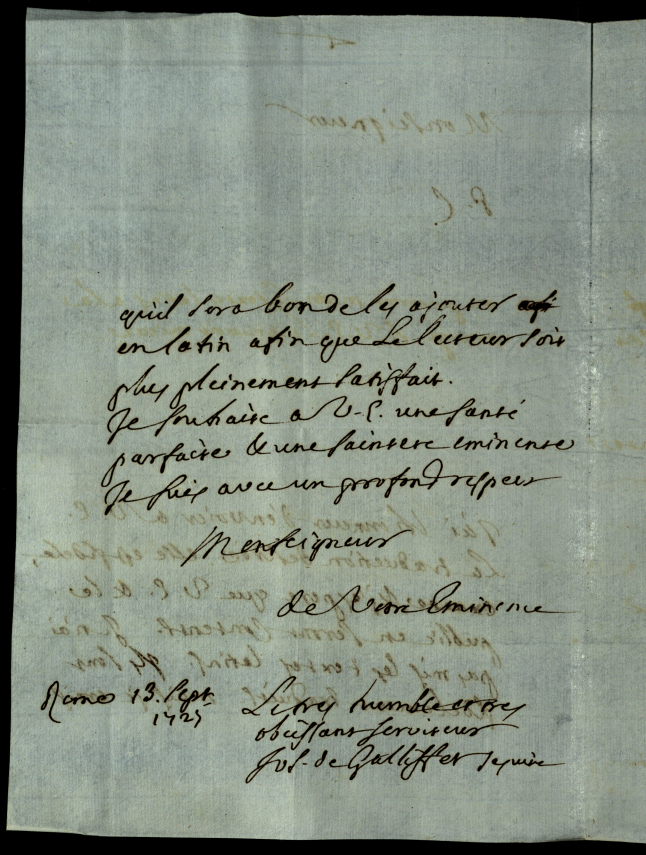 qu'il sera bon de les ajouter
en latin afin que le lecteur soit
plus pleinement satisfait.
Je souhaite a V. E. une santé
parfaite & une sainteté eminente
Je suis avec un profond respect
Monseigneur
de Votre Eminence
Rome 13. Sept
1725
Le tres humble et tres
obeissant serviteur
Jos. de Galliffet Jesuite